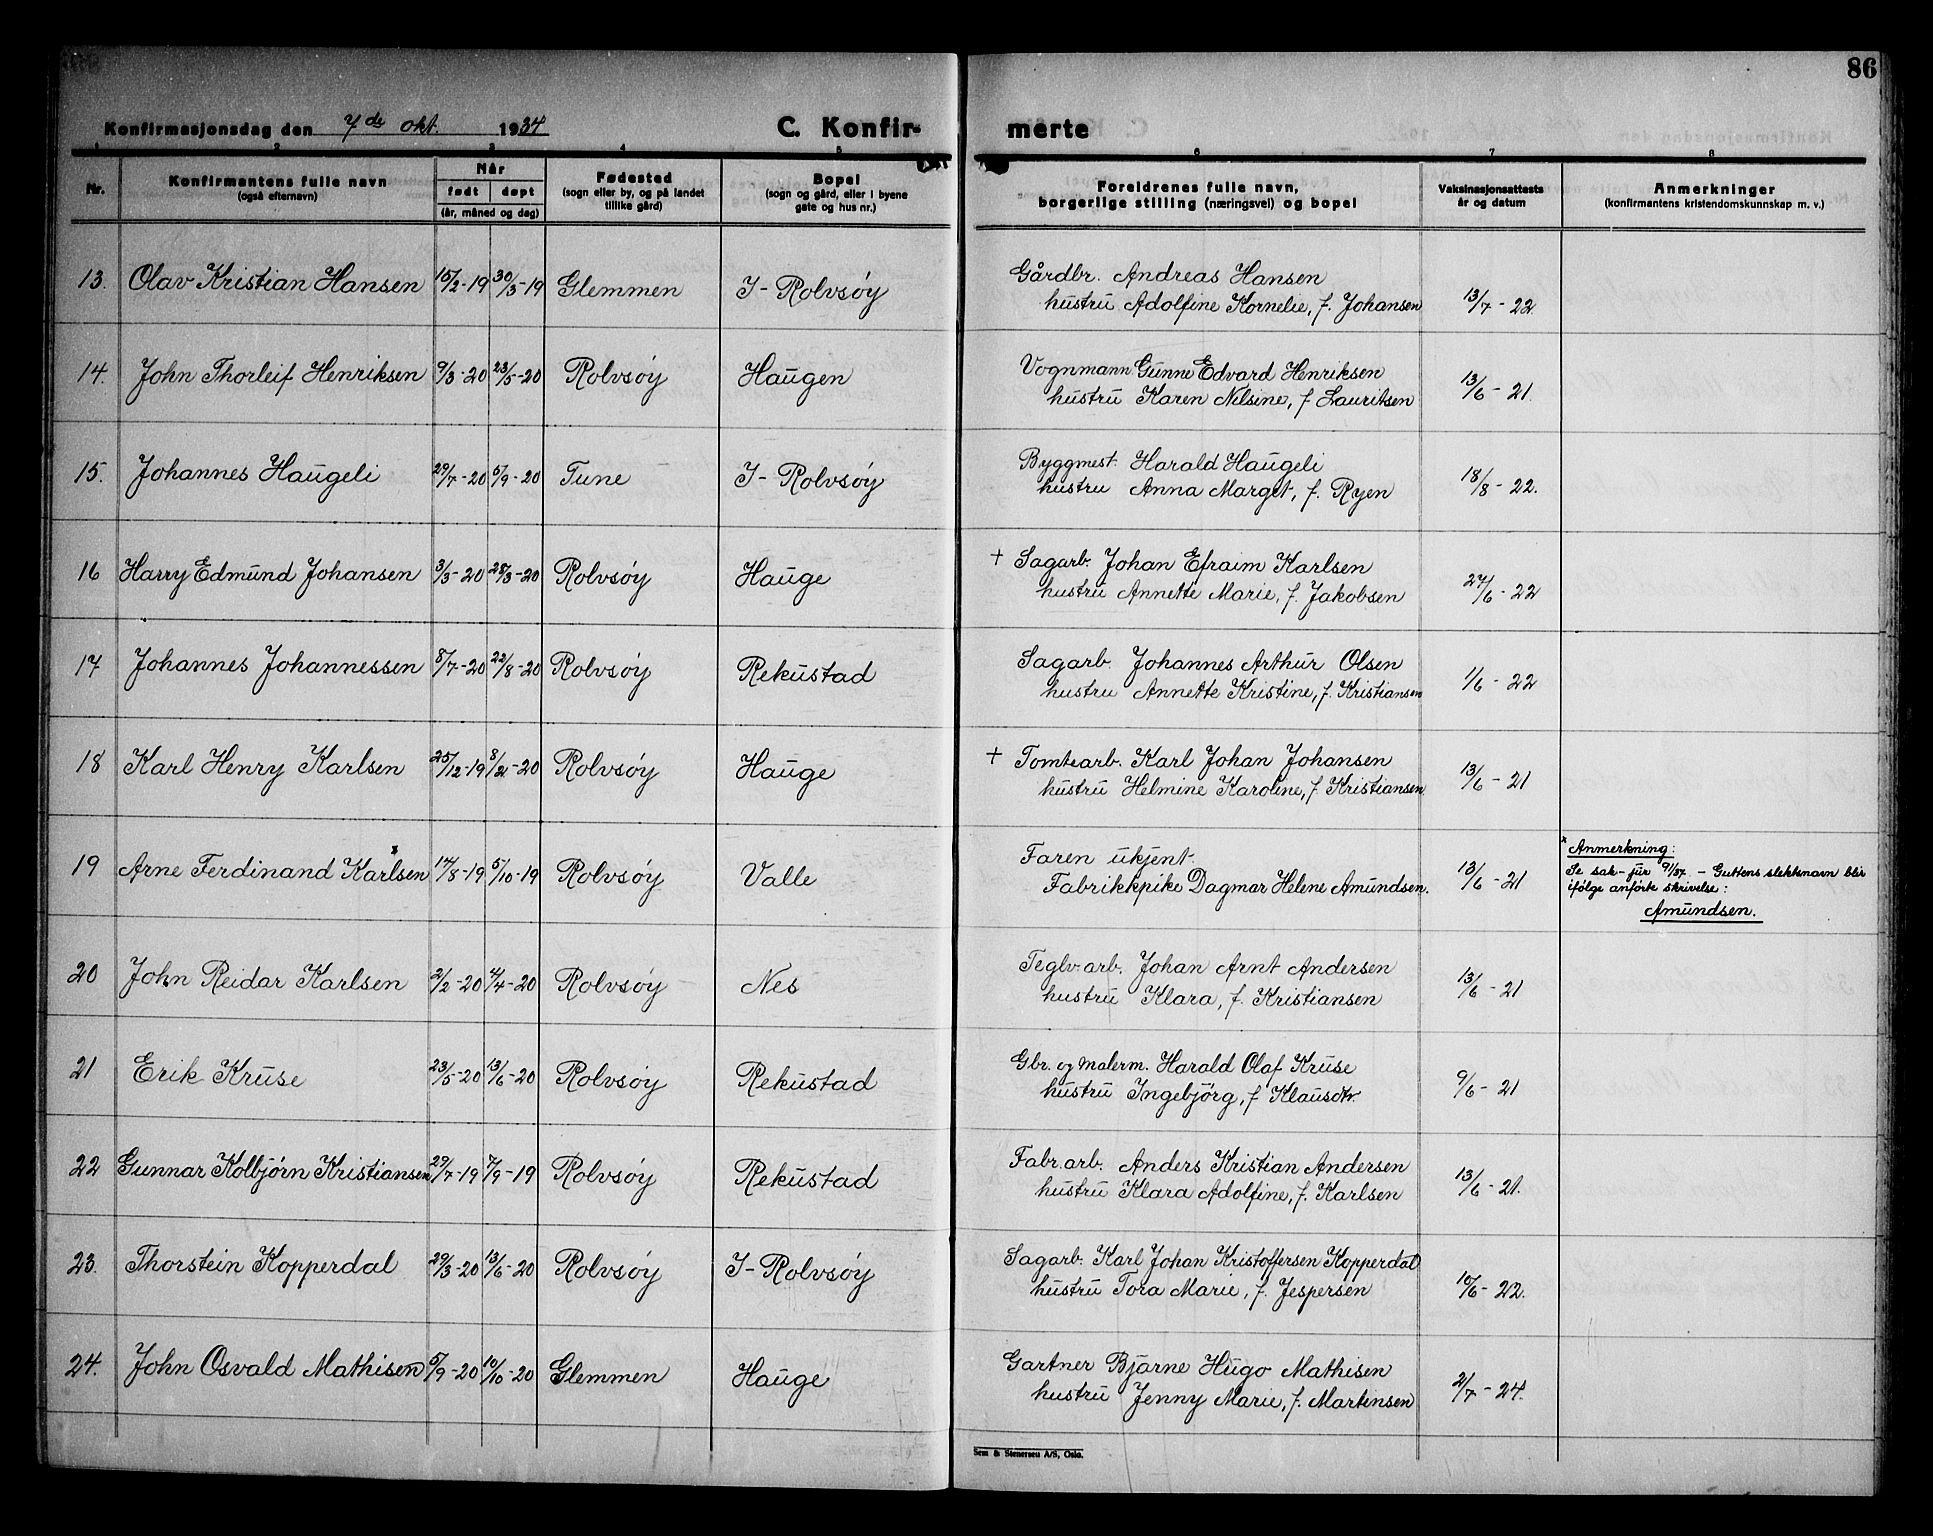 86
Konfirmasjonsdag den 7de okt. 1934 C. Konfir- merte
1 2 3 4 5 6 7 8
Nr. Konfirmantens fulle navn (også efternavn) Når født døpt (år, måned og dag) Fødested (sogn eller by, og på landet tillike gård) Bopel (sogn og gård, eller i byene gate og hus nr.) Foreldrenes fulle navn, borgerlige stilling (næringsvei) og bopel Vaksinasjonsattests år og datum Anmerkninger (konfirmantens kristendomskunnskap m. v.)
13. Olav Kristian Hansen 15/2-19 30/3-19 Glemmen I-Rolvsöy Gårdbr. Andreas Hansen
hustru Adolfine Kornelie, f. Johansen 13/7-22
14. John Thorleif Henriksen 9/3-20 23/5-20 Rolvsöy Haugen Vognmann Gunne Edvard Henriksen
hustru Karen Nilsine, f Lauritsen 13/6-21.
15. Johannes Haugeli 29/7-20 5/9-20 Tune I-Rolvsöy Byggmest. Harald Haugeli
hustru Anna Marget, f. Ryen 18/8-22.
16 Harry Edmund Johansen 3/3-20 28/3-20 Rolvsöy Hauge + Sagarb. Johan Efraim Karlsen
hustru Annette Marie, f. Jakobsen 27/6-22
17 Johannes Johannessen 8/7-20 22/8-20 Rolvsöy Rekustad Sagarb. Johannes Arthur Olsen
hustru Annette Kristine, f. Kristiansen 1/6-22
18 Karl Henry Karlsen 25/12-19 8/2-20 Rolvsöy Hauge + Tomtearb. Karl Johan Johansen
hustru Helmine Karoline, f. Kristiansen 13/6-21
19 Arne Ferdinand Karlsen x 14/8-19 5/10-19 Rolvsöy Valle Faren ukjent.
Fabrikkpike Dagmar Helene Amundsen. 13/6-21
x Anmerkning:
Se sak-jur 9/1/37. - Guttens slektsnavn blir
ifølge anførte skrivelse:
Amundsen.
20 John Reidar Karlsen 2/2-20 4/4-20 Rolvsöy Nes Teglv.arb. Johan Arnt Andersen
hustru Klara, f. Kristiansen 13/6-21
21 Erik Kruse 23/5-20 13/6-20 Rolvsöy Rekustad Gbr. og malerm. Harald Olaf Kruse
hustru Ingebjörg, f Klausdtr. 9/6-21
22 Gunnar Kolbjörn Kristiansen 29/7-19 7/9-19 Rolvsöy Rekustad Fabr.arb. Anders Kristian Andersen
hustru Klara Adolfine, f. Karlsen 13/6-21.
23. Thorstein Kopperdal 29/3-20 13/6-20 Rolvsöy I-Rolvsöy Sagarb. Karl Johan Kristoffersen Kopperdal
hustru Tora Marie, f. Jespersen 10/6-22.
24. John Osvald Mathisen 5/9-20 10/10-20 Glemmen Hauge Gartner Bjarne Hugo Mathisen
hustru Jenny Marie, f. Martinsen 2/7-24.
Sem & Stenersen A/S, Oslo.